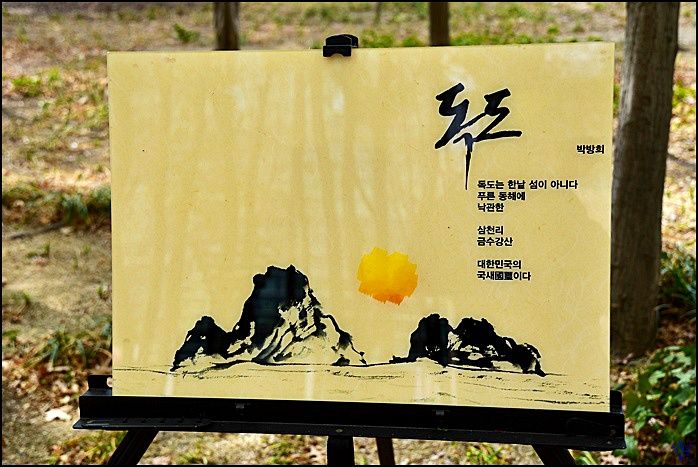 독도
박방희
독도는 한낱 섬이 아니다
푸른 동해에
낙관한
삼천리
금수강산
대한민국의
국새國璽이다